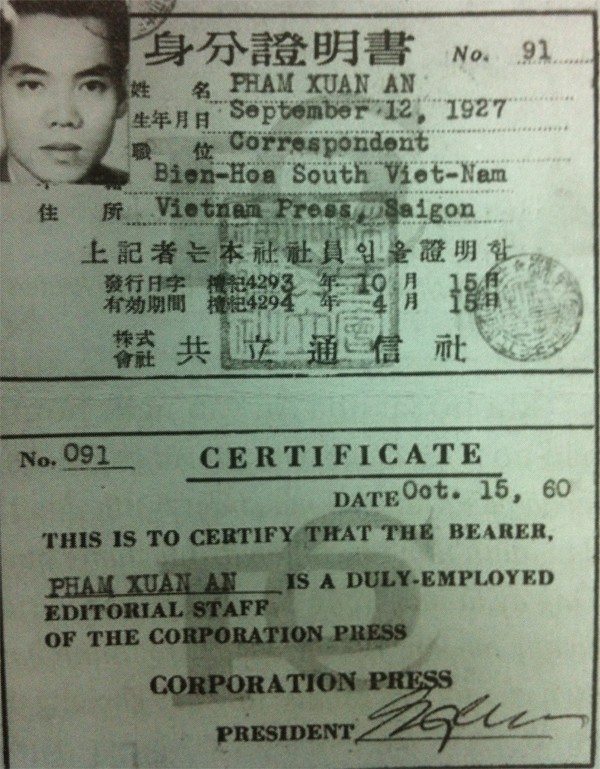 身分證明書 No. 91
姓名 PHAM XUAN AN
生年月日 September 12, 1927
職位 Correspondent
Bien-Hoa South Viet-Nam
住所 Vietnam Press, Saigon
上記者는本社社員임을證明함
發行日字 檀紀4293年 10月 15日
有効期間 檀紀4294年 4月 15日
株式會社 共立通信社
No. 091 CERTIFICATE
DATE Oct. 15, 60
THIS IS TO CERTIFY THAT THE BEARER,
PHAM XUAN AN IS A DULY-EMPLOYED
EDITORIAL STAFF
OF THE CORPORATION PRESS
CORPORATION PRESS
PRESIDENT